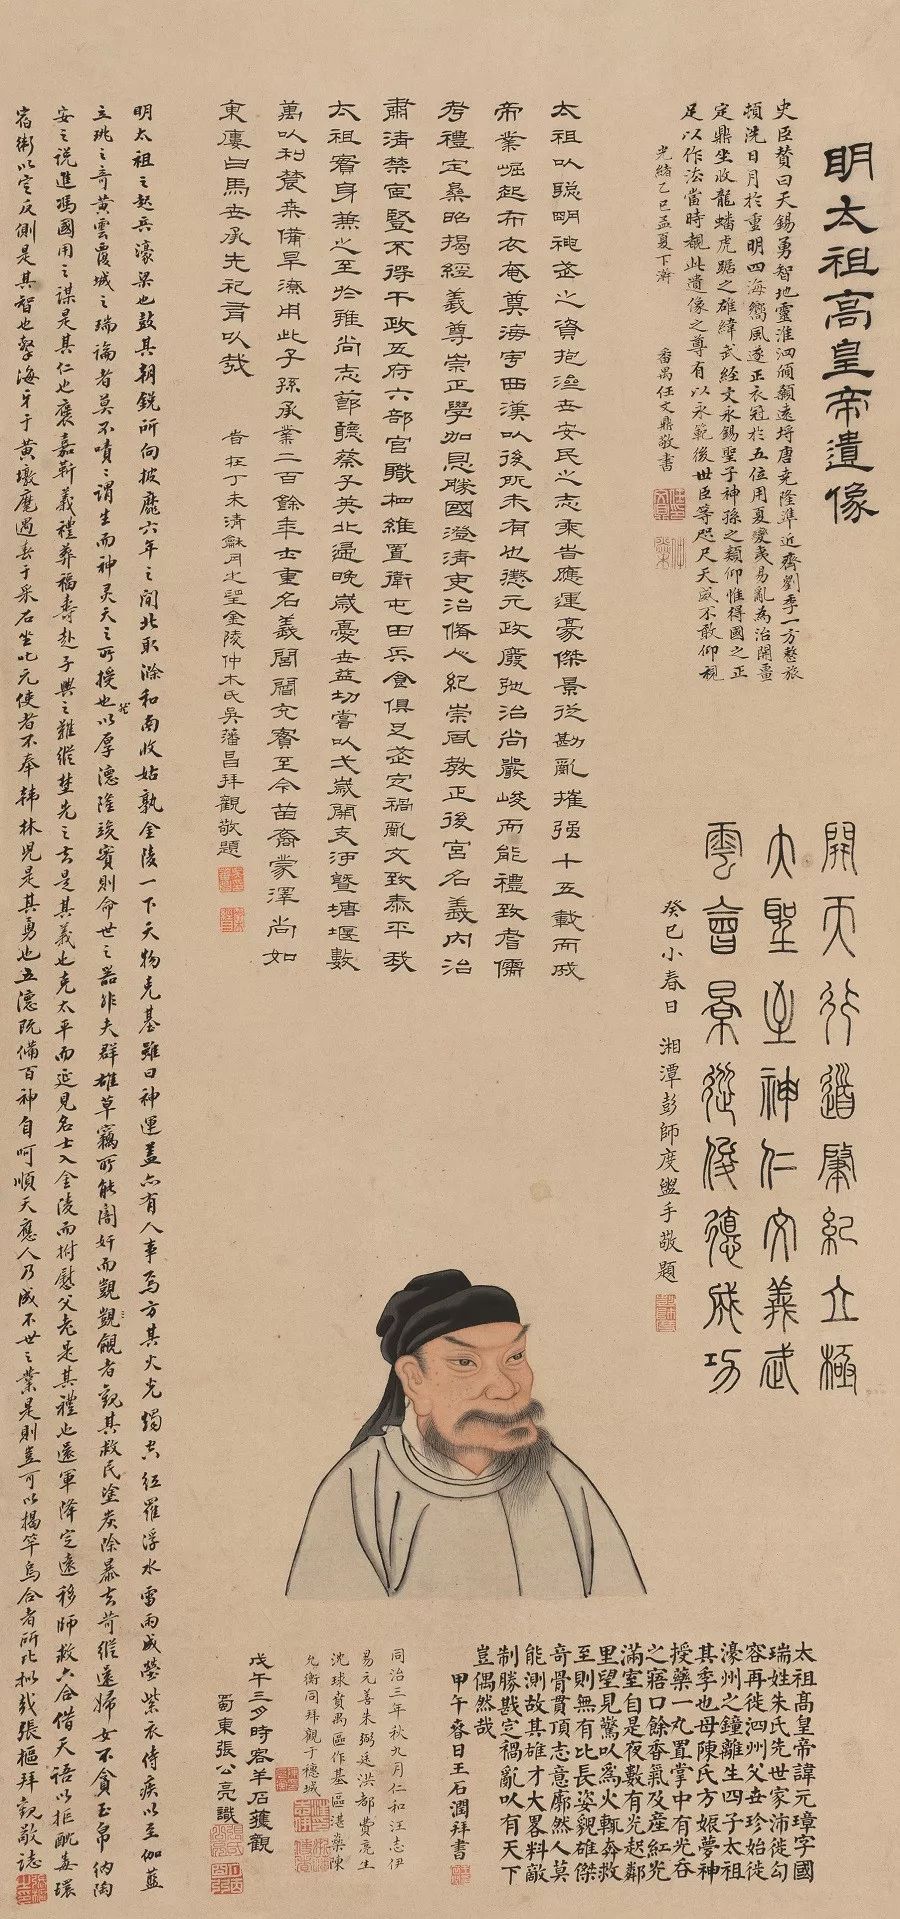 明太祖高皇帝遺像
史臣贊曰天錫勇智地靈淮泗頒顙遠埒唐堯隆準近齊劉季一方憝旅
頓洗日月於重明四海嚮風遂正衣冠於五位用夏變夷易亂為治開
定鼎坐收龍蟠虎踞之雄緯武經文永錫聖子神孫之類仰惟得國之正
足以作法當時覩此遺像之尊有以永範後世臣等咫尺天威不敢仰視
光緒乙巳孟夏下澣 番禺任文鼎敬書
開天行道肇紀立極
大聖至神仁文義武
雲會景從俊德成功
癸巳小春日 湘潭彭師度盥手敬題
太祖以聰明神武之資抱濟世安民之志乘時應運豪傑景從勘亂摧强十五載而成
帝業崛起布衣奄奠海宇西漢以後所未有也懲元政廢弛治尚嚴峻而能禮致耆儒
考禮定桑昭揭經義尊崇正學加恩勝國澄清吏治脩人紀崇風教正後宮名義內治
肅清禁宦豎不得干政五府六部官職相維置衛屯田兵食俱足武定禍亂文致泰平我
太祖實身兼之至於雅尚志節聽蔡子英北還晚歲憂世益切嘗以弋歲開支河暨塘堰數
萬以利農桑備旱潦用此子孫承業二百餘年士重名義閭閻充實至今苗裔蒙澤尚如
東廔白馬世承先祀有以哉
旹在丁未清龢月之望金陵仲木氏吳藩昌拜觀敬題
明太祖之起兵濠梁也鼓其朝銳所向披靡六年之間北取滁和南收姑孰金陵一下天物克基雖曰神運蓋亦有人事焉方其火光燭空紅羅浮水雷雨成塋紫衣侍疾以至伽藍
立珓之奇黃雲覆城之瑞論者莫不嘖之謂生而神灵天之所授也以厚德隆竢實則命世之器非夫群雄草竊所能闇奸而覬覦覩者觀其救民塗炭除暴去苛縱遠婦女不貪玉帛納陶
安之說進馮國用之謀是其仁也褒嘉靳義禮葬福壽赴子興之難縱埜先之去是其義也克太平而延見名士入金陵而拊慰父老是其禮也還軍降定遠移師救六合借天語以拒酖毒環
宿衛以定反側是其智也擊海牙于黃墩麾遇春于采石坐叱元使者不奉韓林兒是其勇也五德既備百神自呵順天應人乃成不世之業是則豈可以揭竿烏合者所比拟哉張樞拜觀敬誌
太祖高皇帝諱元璋字國
瑞姓朱氏先世家沛徙句
容再徙泗州父世珍始徙
濠州之鐘離生四子太祖
其季也母陳氏方娠夢神
授藥一丸置掌中有光吞
之寤口餘香氣及產紅光
滿室自是夜數有光起鄰
里望見驚以為火輒奔救
至則無有比長姿貌雄傑
奇骨貫頂志意廓然人莫
能測故其雄才大畧料敵
制勝戡定禍亂以有天下
豈偶然哉
甲午春日王石潤拜書
同治三年秋九月仁和汪志伊
易元善朱弼廷洪都費庶生
沈球賓禺區作基區湛藥陳
允衡同拜觀于穗城
戊午三月時客羊石獲觀
蜀東張公亮識